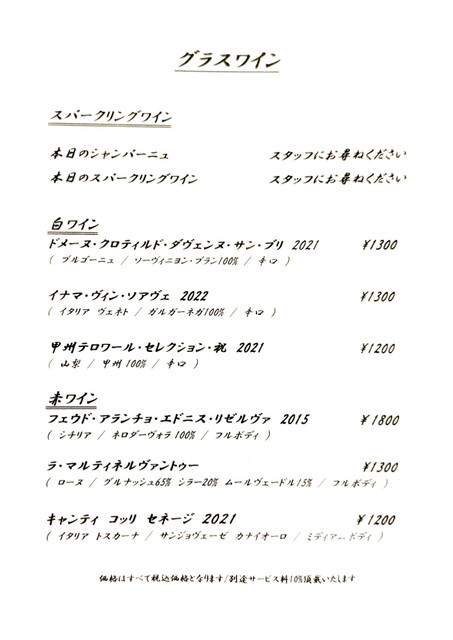 グラスワイン
スパークリングワイン
本日のシャンパーニュ スタッフにお尋ねください
本日のスパークリングワイン スタッフにお尋ねください
白ワイン
ドメーヌ・クロティルド・ダヴェンヌ・サン・ブリ 2021 ¥1300
( ブルゴーニュ / ソーヴィニヨン・ブラン100% / 辛口 )
イナマ・ヴィン・ソアヴェ 2022 ¥1300
( イタリア ヴェネト / ガルガーネガ100% / 辛口 )
甲州テロワール・セレクション・祝 2021 ¥1200
( 山梨 / 甲州100% / 辛口 )
赤ワイン
フェウド・アランチョ・エドニス・リゼルヴァ 2015 ¥1800
( シチリア / ネロダーヴォラ100% / フルボディ )
ラ・マルティネルヴァントゥー ¥1300
( ローヌ / グルナッシュ65% シラー20% ムールヴェードル15% / フルボディ )
キャンティ コッリ セネージ 2021 ¥1200
( イタリア トスカーナ / サンジョヴェーゼ カナイオーロ / ミディアムボディ )
価格はすべて税込価格となります/別途サービス料10%頂戴いたします